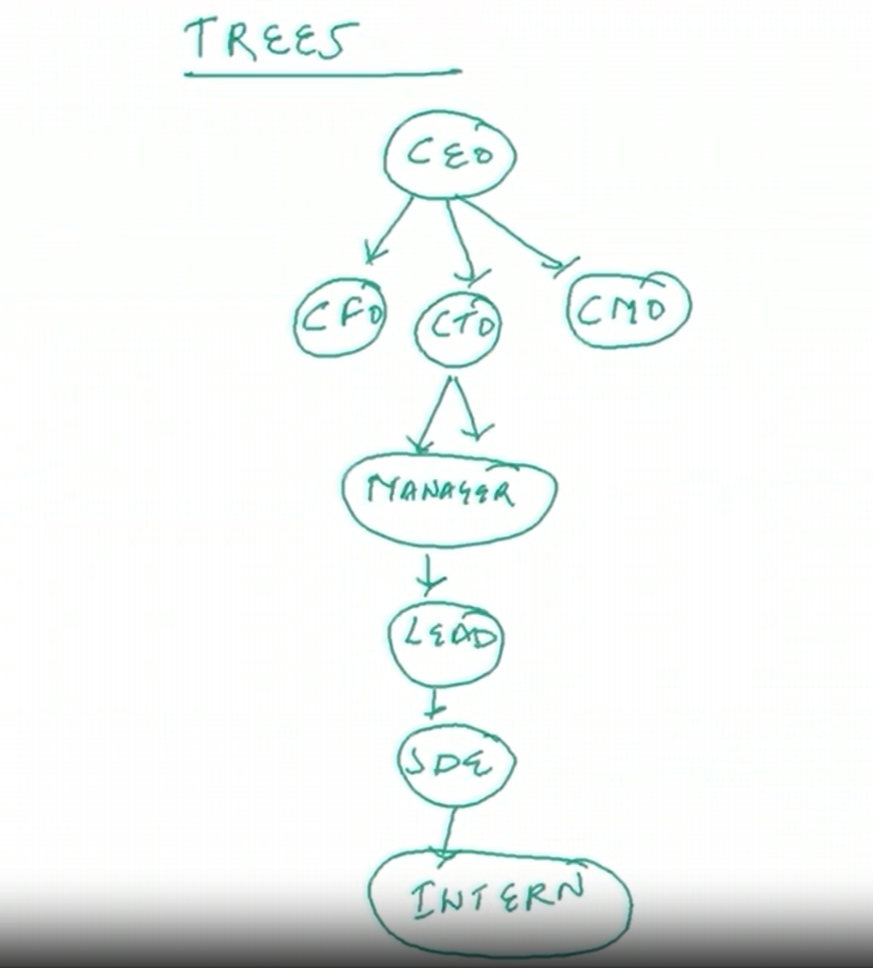 TREES
CEO
CFO
CTO
CMO
MANAGER
LEAD
SDE
INTERN